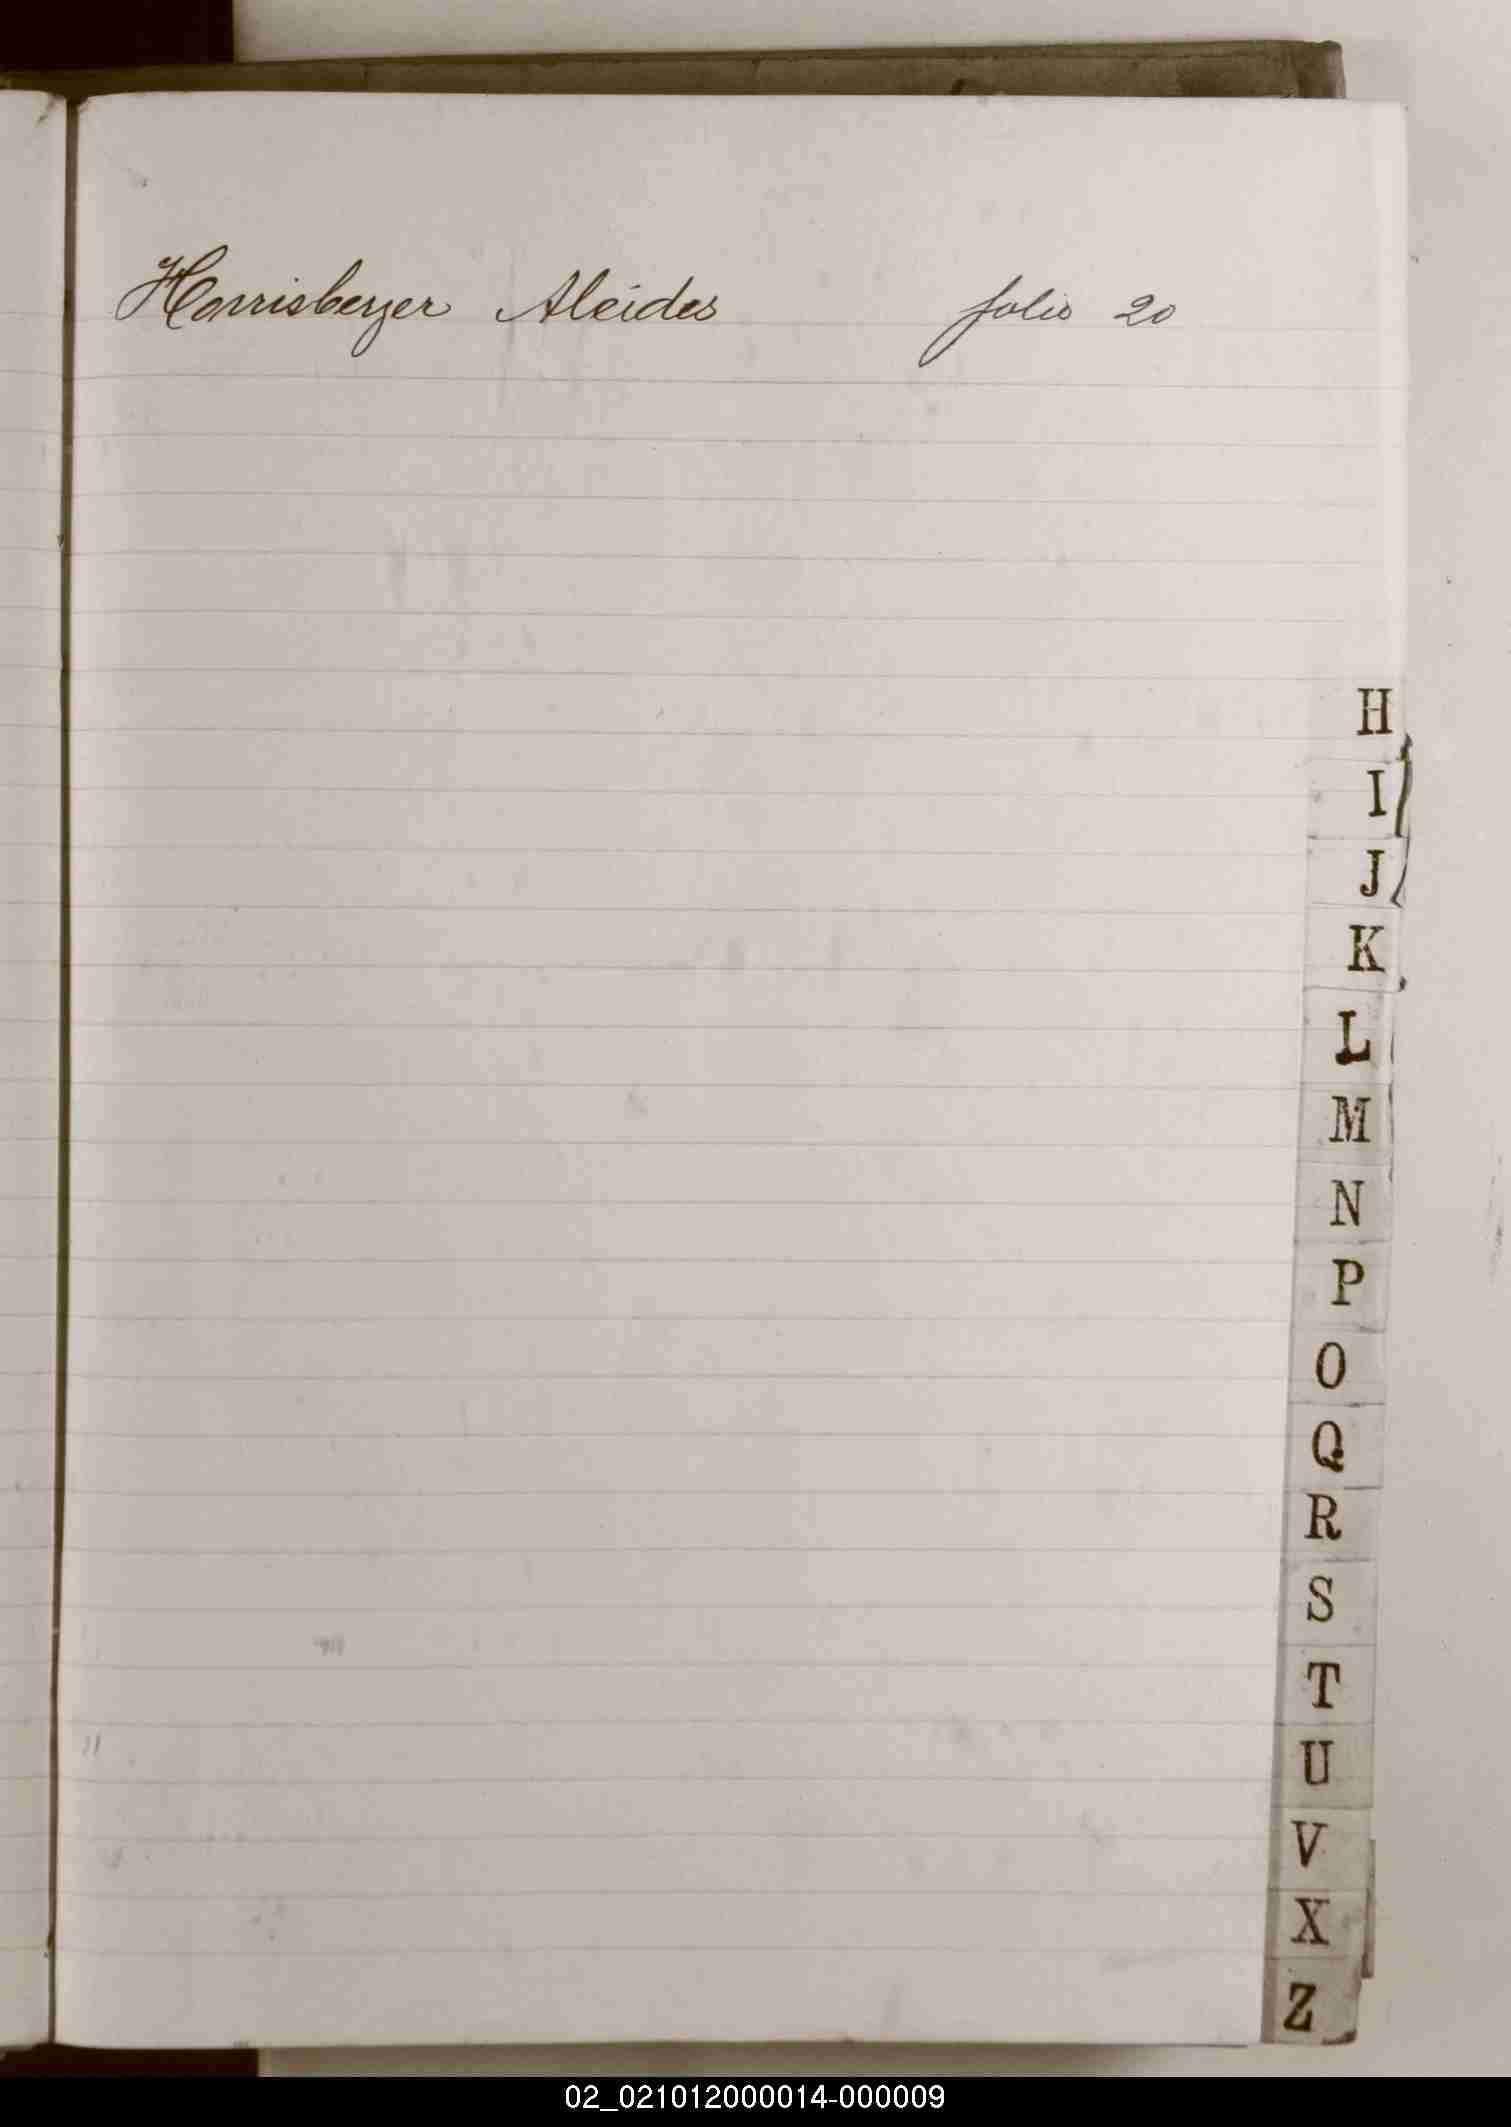 Harrisberger Aleides folio 20
H
I
J
K
L
M
N
P
O
Q
R
S
T
U
V
X
Z
02_021012000014-000009